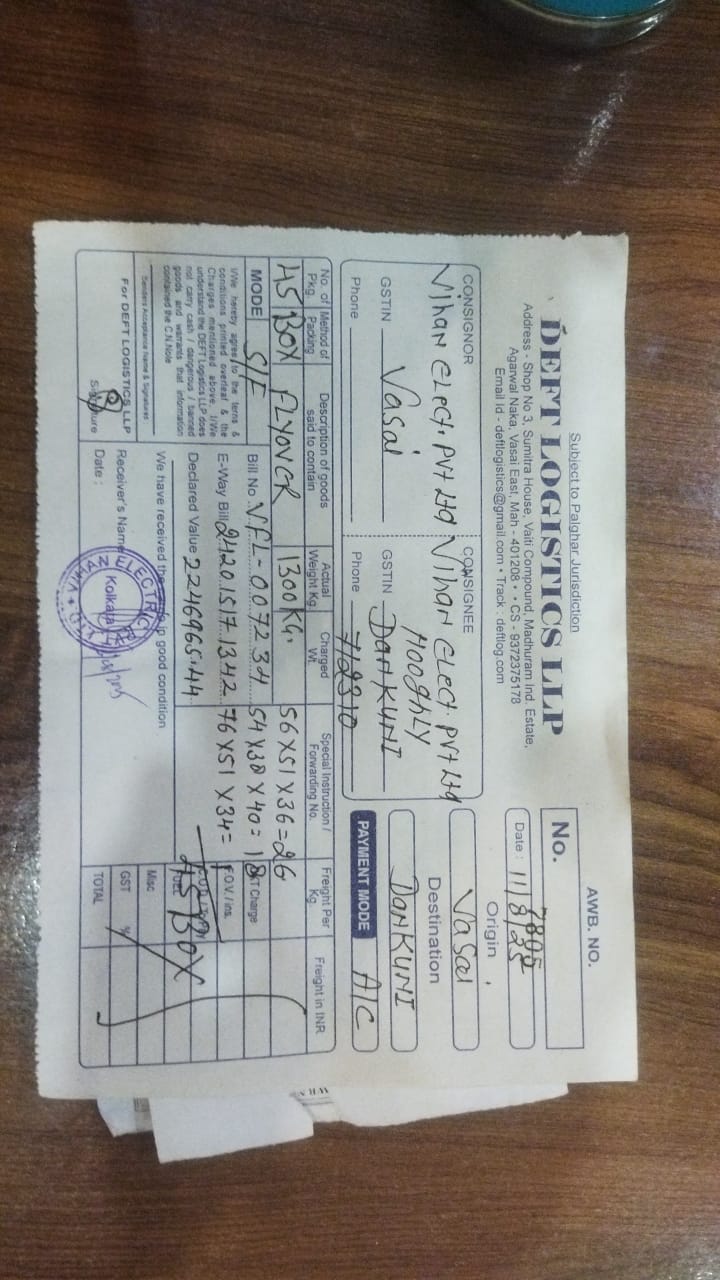 Subject to Palghar Jurisdiction
DEFT LOGISTICS LLP
Address - Shop No 3, Sumitra House, Vaiti Compound, Madhuram Ind. Estate,
Agarwal Naka, Vasai East, Mah - 401208 • • CS - 9372375178
Email Id - deftlogistics@gmail.com • Track : deftlog.com
AWB. NO.
No.
7895
Date : 11/8/25
CONSIGNOR
Vihan Elect. Pvt Ltd
Vasai
GSTIN
Phone
CONSIGNEE
Vihan Elect. Pvt Ltd
Hooghly
GSTIN DanKUNI
Phone 712310
Origin
Vasai
Destination
DanKUNI
PAYMENT MODE A/C
No. of Pkg. Method of Packing Description of goods said to contain Actual Weight Kg. Charged Wt. Special Instruction / Forwarding No. Freight Per Kg Freight in INR
45 BOX FLYOVER 1300 KG. 56X51X36=26
MODE S/F Bill No. VFL-007234 54X38X40=18 Charge
E-Way Bill 242015171342 76X51X34=1 F.O.V. / ins.
Declared Value 2246965.44 45 BOX FUEL
I/We hereby agree to the terms &
conditions printed overleaf & the
Charges mentioned above. I/We
understand the DEFT Logistics LLP does
not carry cash / dangerous / banned
goods and warrants that information
contained the C.N.Note
Senders Acceptance Name & Signatures
We have received the in good condition
Misc
For DEFT LOGISTICS LLP Receiver's Name GST %
Signature Date : TOTAL
ELECTRIC
Kolkata